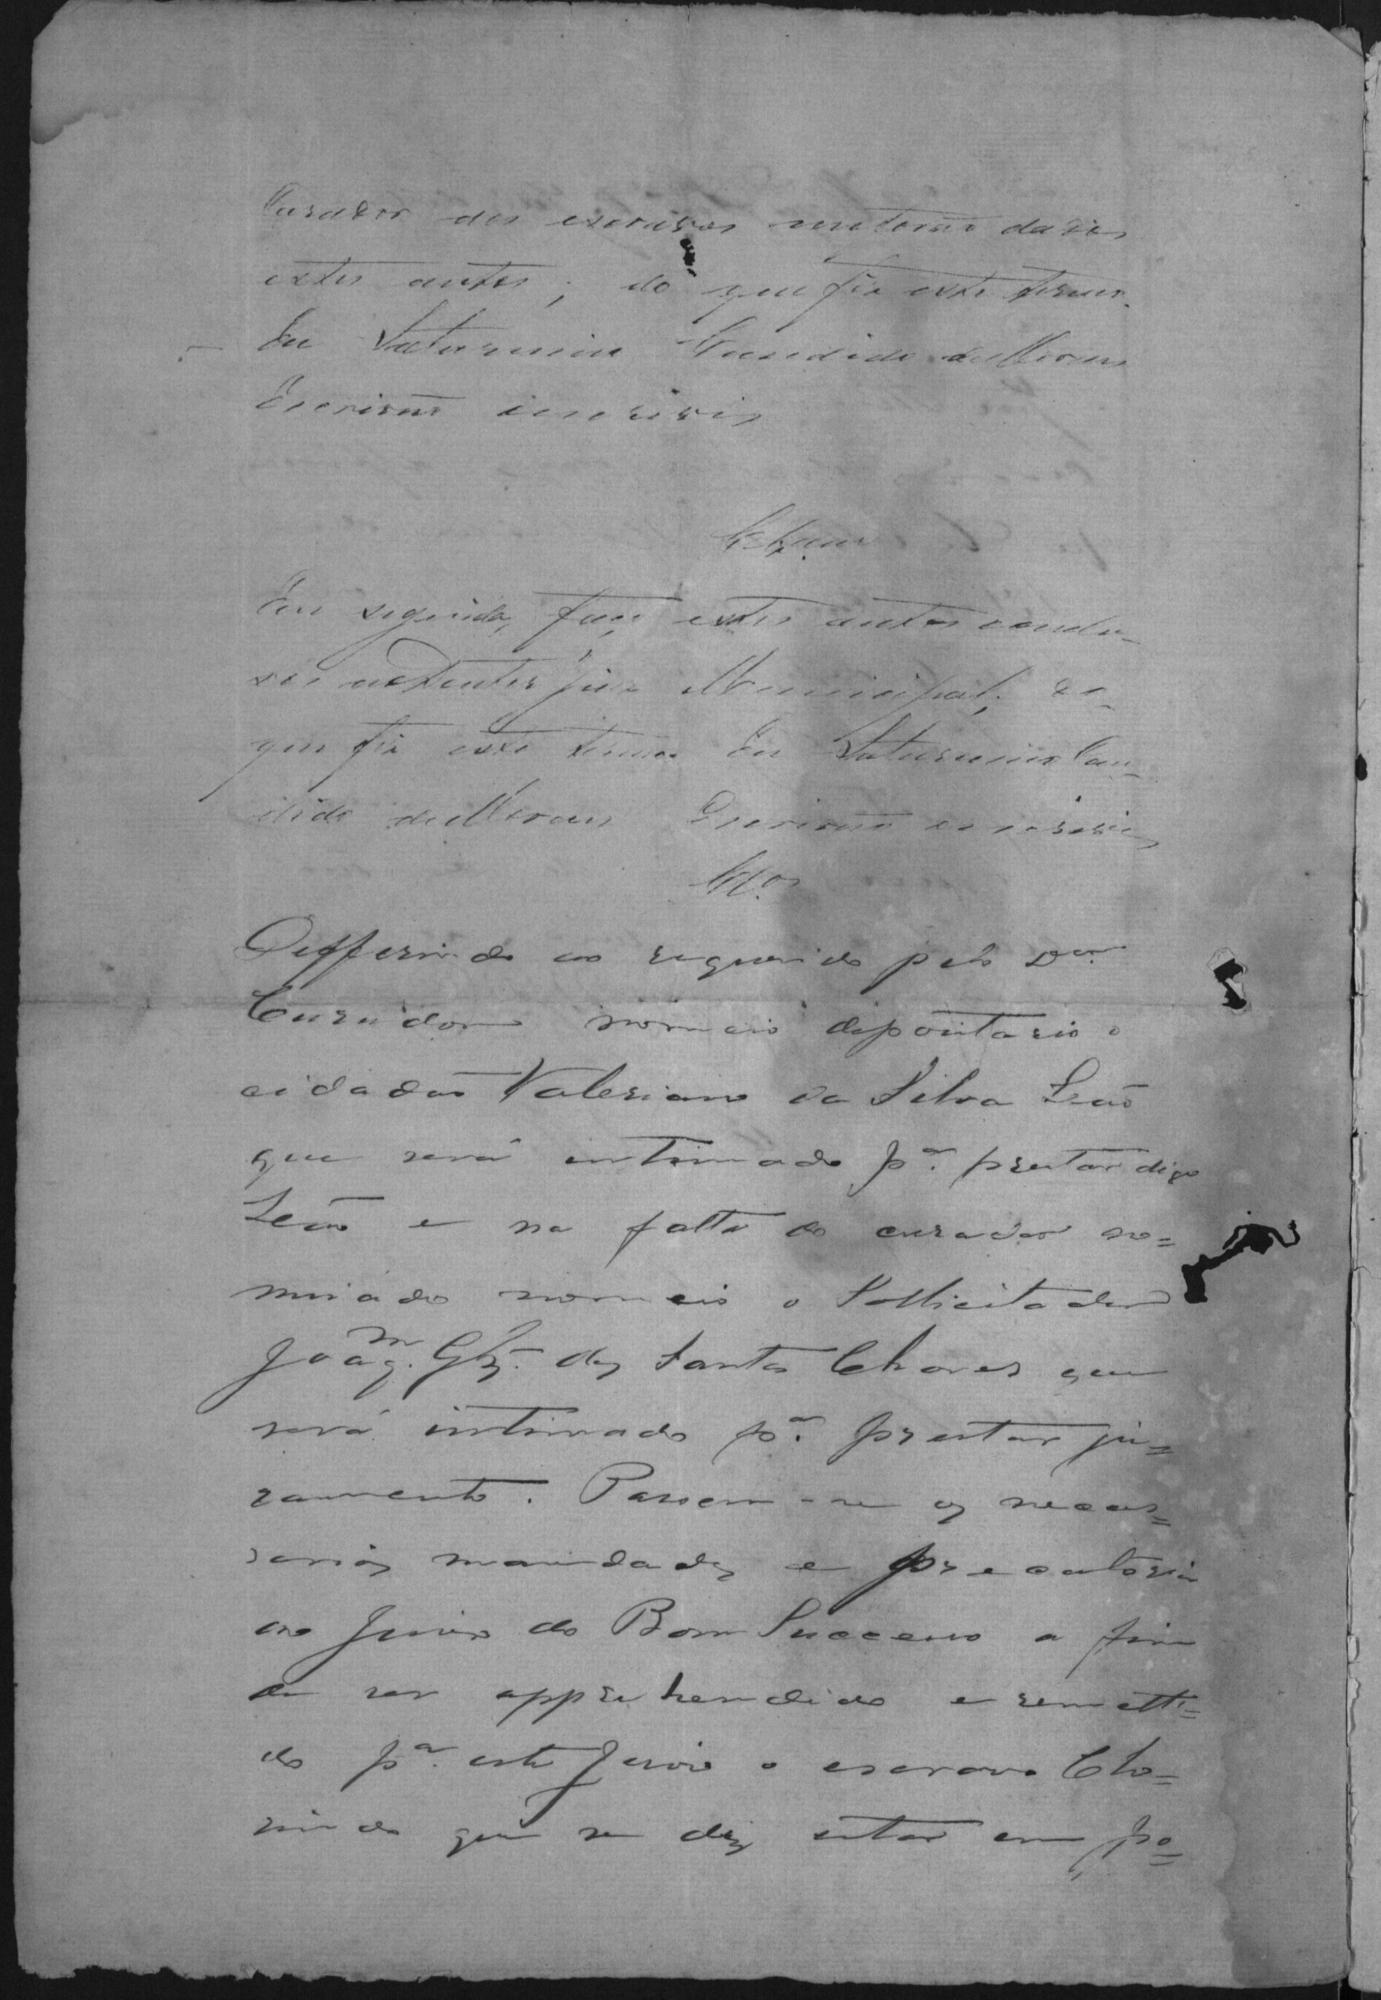 Curador dos escravos me forão dados
estes autos; do que fiz este termo.
Eu Saturnino Candido de Moraes
Escrivão escrivi
Em seguida, faço estes autos conclu-
sos Juiz Municipal; do
que fiz este termo Eu Saturnino Can-
dido de Moraes Escrivão escrivi
Clos
Defferindo ao requerido pelo Dor.
Curador nomeio depositario o
cidadão Valeriano da Silva Leão
que será intimado pa. prestar digo
Leão e na falta do curador no=
miado nomeio o Sollicitador
Joaqm. Glz. dos Santos Chaves que
será intimado pa. prestar ju=
ramento. Passem-se os neces=
sarios mandados e precatoria
ao Juiso do Bom Successo a fim
de ser apprehendido e remetti=
do pa. este Juiso o escravo Clo=
rindo que se diz estar em po=